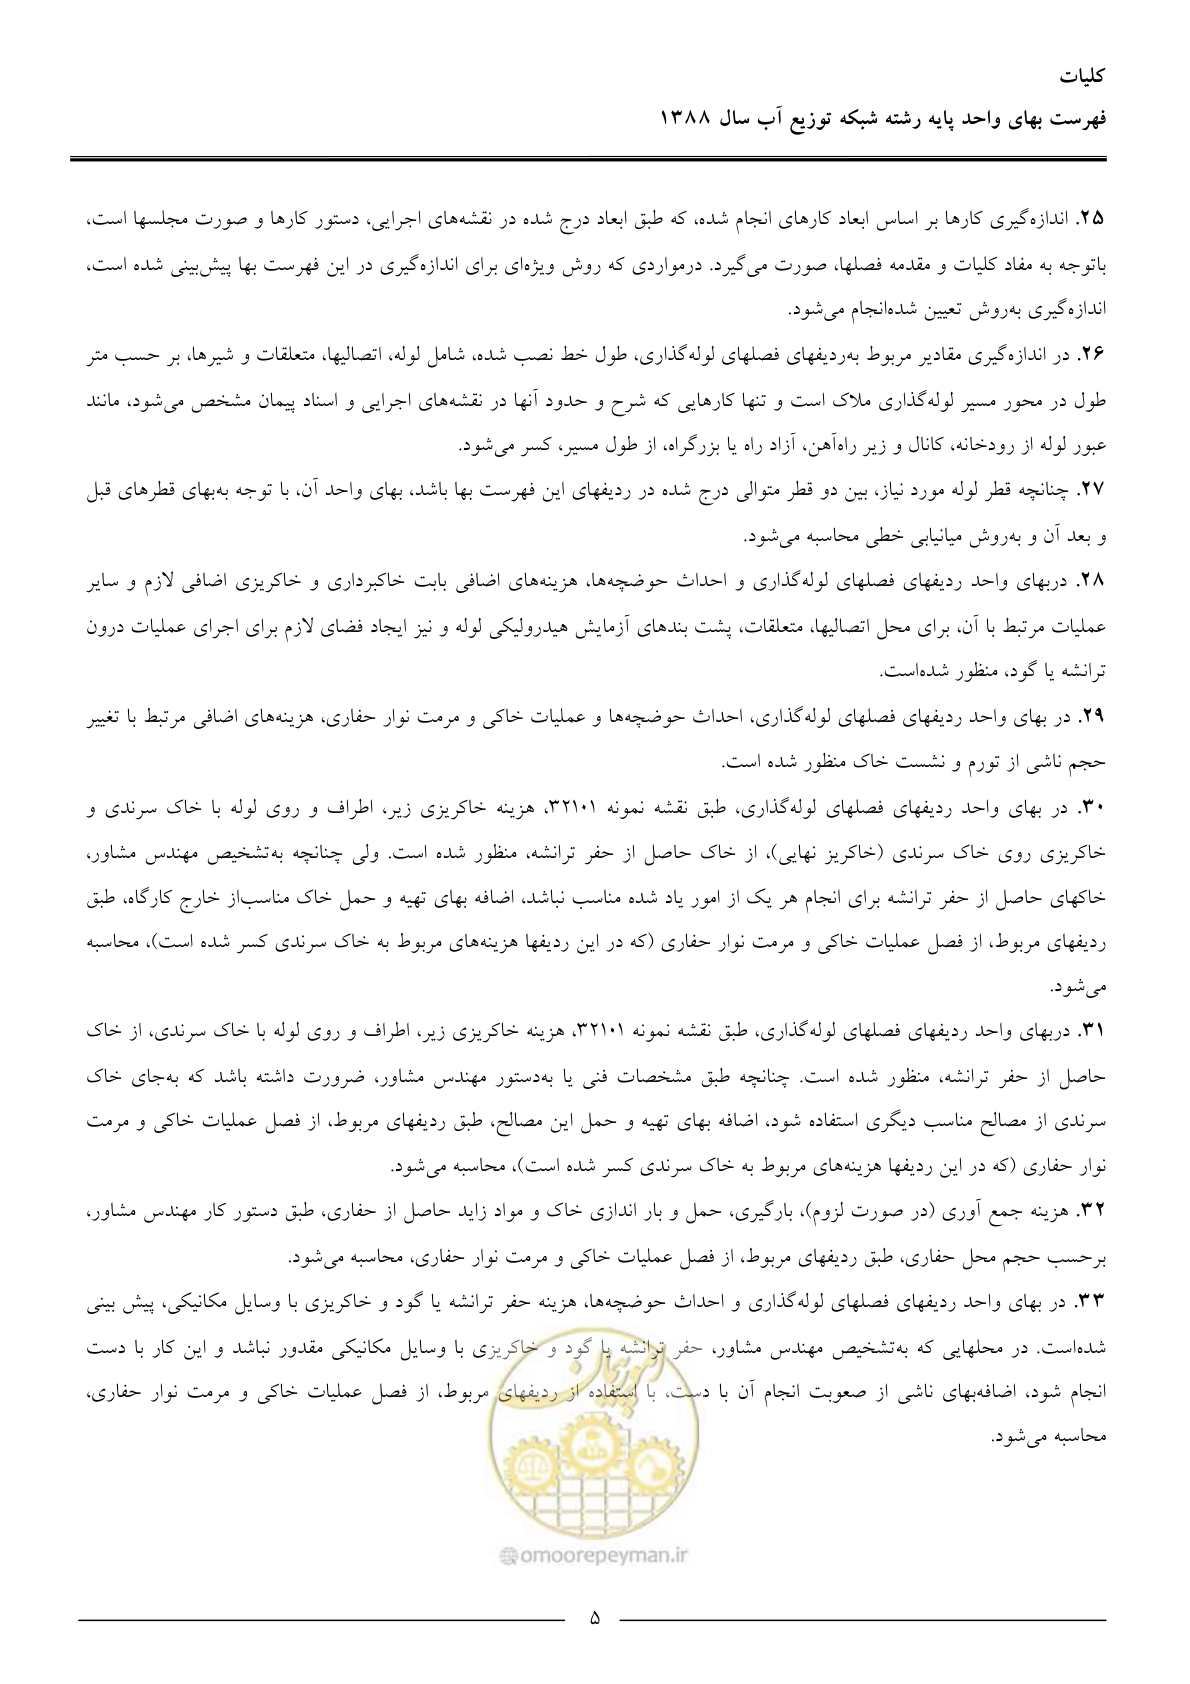 کلیات
فهرست بهای واحد پایه رشته شبکه توزیع آب سال ۱۳۸۸
۲۵. اندازه‌گیری کارها بر اساس ابعاد کارهای انجام شده، که طبق ابعاد درج شده در نقشه‌های اجرایی، دستور کارها و صورت مجلسها است،
باتوجه به مفاد کلیات و مقدمه فصلها، صورت می‌گیرد. درمواردی که روش ویژه‌ای برای اندازه‌گیری در این فهرست بها پیش‌بینی شده است،
اندازه‌گیری به‌روش تعیین شده‌انجام می‌شود.
۲۶. در اندازه‌گیری مقادیر مربوط به‌ردیفهای فصلهای لوله‌گذاری، طول خط نصب شده، شامل لوله، اتصالیها، متعلقات و شیرها، بر حسب متر
طول در محور مسیر لوله‌گذاری ملاک است و تنها کارهایی که شرح و حدود آنها در نقشه‌های اجرایی و اسناد پیمان مشخص می‌شود، مانند
عبور لوله از رودخانه، کانال و زیر راه‌آهن، آزاد راه یا بزرگراه، از طول مسیر، کسر می‌شود.
۲۷. چنانچه قطر لوله مورد نیاز، بین دو قطر متوالی درج شده در ردیفهای این فهرست بها باشد، بهای واحد آن، با توجه به‌بهای قطرهای قبل
و بعد آن و به‌روش میانیابی خطی محاسبه می‌شود.
۲۸. دربهای واحد ردیفهای فصلهای لوله‌گذاری و احداث حوضچه‌ها، هزینه‌های اضافی بابت خاکبرداری و خاکریزی اضافی لازم و سایر
عملیات مرتبط با آن، برای محل اتصالیها، متعلقات، پشت بندهای آزمایش هیدرولیکی لوله و نیز ایجاد فضای لازم برای اجرای عملیات درون
ترانشه یا گود، منظور شده‌است.
۲۹. در بهای واحد ردیفهای فصلهای لوله‌گذاری، احداث حوضچه‌ها و عملیات خاکی و مرمت نوار حفاری، هزینه‌های اضافی مرتبط با تغییر
حجم ناشی از تورم و نشست خاک منظور شده است.
۳۰. در بهای واحد ردیفهای فصلهای لوله‌گذاری، طبق نقشه نمونه ۳۲۱۰۱، هزینه خاکریزی زیر، اطراف و روی لوله با خاک سرندی و
خاکریزی روی خاک سرندی (خاکریز نهایی)، از خاک حاصل از حفر ترانشه، منظور شده است. ولی چنانچه به‌تشخیص مهندس مشاور،
خاکهای حاصل از حفر ترانشه برای انجام هر یک از امور یاد شده مناسب نباشد، اضافه بهای تهیه و حمل خاک مناسب‌از خارج کارگاه، طبق
ردیفهای مربوط، از فصل عملیات خاکی و مرمت نوار حفاری (که در این ردیفها هزینه‌های مربوط به خاک سرندی کسر شده است)، محاسبه
می‌شود.
۳۱. دربهای واحد ردیفهای فصلهای لوله‌گذاری، طبق نقشه نمونه ۳۲۱۰۱، هزینه خاکریزی زیر، اطراف و روی لوله با خاک سرندی، از خاک
حاصل از حفر ترانشه، منظور شده است. چنانچه طبق مشخصات فنی یا به‌دستور مهندس مشاور، ضرورت داشته باشد که به‌جای خاک
سرندی از مصالح مناسب دیگری استفاده شود، اضافه بهای تهیه و حمل این مصالح، طبق ردیفهای مربوط، از فصل عملیات خاکی و مرمت
نوار حفاری (که در این ردیفها هزینه‌های مربوط به خاک سرندی کسر شده است)، محاسبه می‌شود.
۳۲. هزینه جمع آوری (در صورت لزوم)، بارگیری، حمل و بار اندازی خاک و مواد زاید حاصل از حفاری، طبق دستور کار مهندس مشاور،
برحسب حجم محل حفاری، طبق ردیفهای مربوط، از فصل عملیات خاکی و مرمت نوار حفاری، محاسبه می‌شود.
۳۳. در بهای واحد ردیفهای فصلهای لوله‌گذاری و احداث حوضچه‌ها، هزینه حفر ترانشه یا گود و خاکریزی با وسایل مکانیکی، پیش بینی
شده‌است. در محلهایی که به‌تشخیص مهندس مشاور، حفر ترانشه یا گود و خاکریزی با وسایل مکانیکی مقدور نباشد و این کار با دست
انجام شود، اضافه‌بهای ناشی از صعوبت انجام آن با دست، با استفاده از ردیفهای مربوط، از فصل عملیات خاکی و مرمت نوار حفاری،
محاسبه می‌شود.
امور پیمان
@omoorepeyman.ir
۵